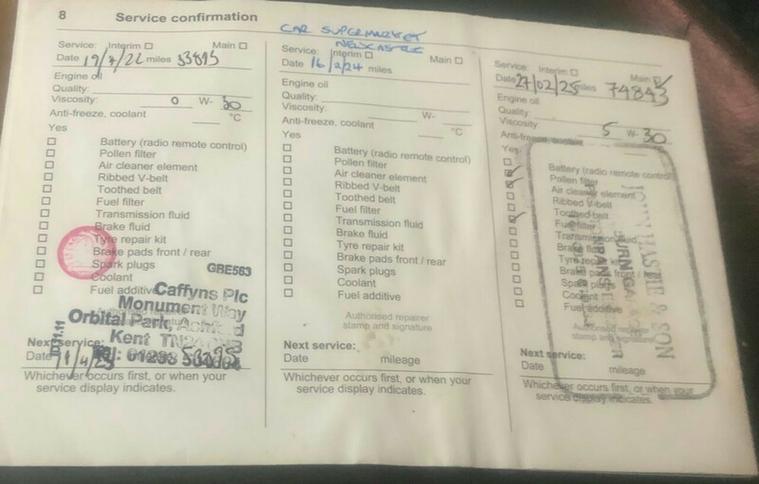 8 Service confirmation
Service: Interim ☐ Main ☐
Date 19/7/22 miles
Engine oil
Quality:
Viscosity: 0 W- 30
Anti-freeze, coolant °C
Yes
☐ Battery (radio remote control)
☐ Pollen filter
☐ Air cleaner element
☐ Ribbed V-belt
☐ Toothed belt
☐ Fuel filter
☐ Transmission fluid
☐ Brake fluid
☐ Tyre repair kit
☐ Brake pads front / rear
☐ Spark plugs
☐ Coolant
☐ Fuel additive
GBE563
Caffyns Plc
Monument Way
Orbital Park,
Kent
Next service:
Date
Whichever occurs first, or when your
service display indicates.
CAR SUPERMARKET
NEWCASTLE
Service: Interim ☐ Main ☐
Date 16/2/24 miles
Engine oil
Quality:
Viscosity: W-
Anti-freeze, coolant °C
Yes
☐ Battery (radio remote control)
☐ Pollen filter
☐ Air cleaner element
☐ Ribbed V-belt
☐ Toothed belt
☐ Fuel filter
☐ Transmission fluid
☐ Brake fluid
☐ Tyre repair kit
☐ Brake pads front / rear
☐ Spark plugs
☐ Coolant
☐ Fuel additive
Authorised repairer
stamp and signature
Next service:
Date mileage
Whichever occurs first, or when your
service display indicates.
Service: Interim ☐ Main ☑
Date 27/02/25 miles 74843
Engine oil
Quality:
Viscosity: 5 W- 30
Anti-freeze, coolant
Yes
Battery (radio remote control)
Pollen filter
Air cleaner element
Ribbed V-belt
Toothed belt
Fuel filter
Transmission fluid
Brake fluid
Tyre repair kit
Brake pads front / rear
Spark plugs
Coolant
Fuel additive
Authorised repairer
stamp and signature
& SON
Next service:
Date mileage
Whichever occurs first, or when your
service display indicates.